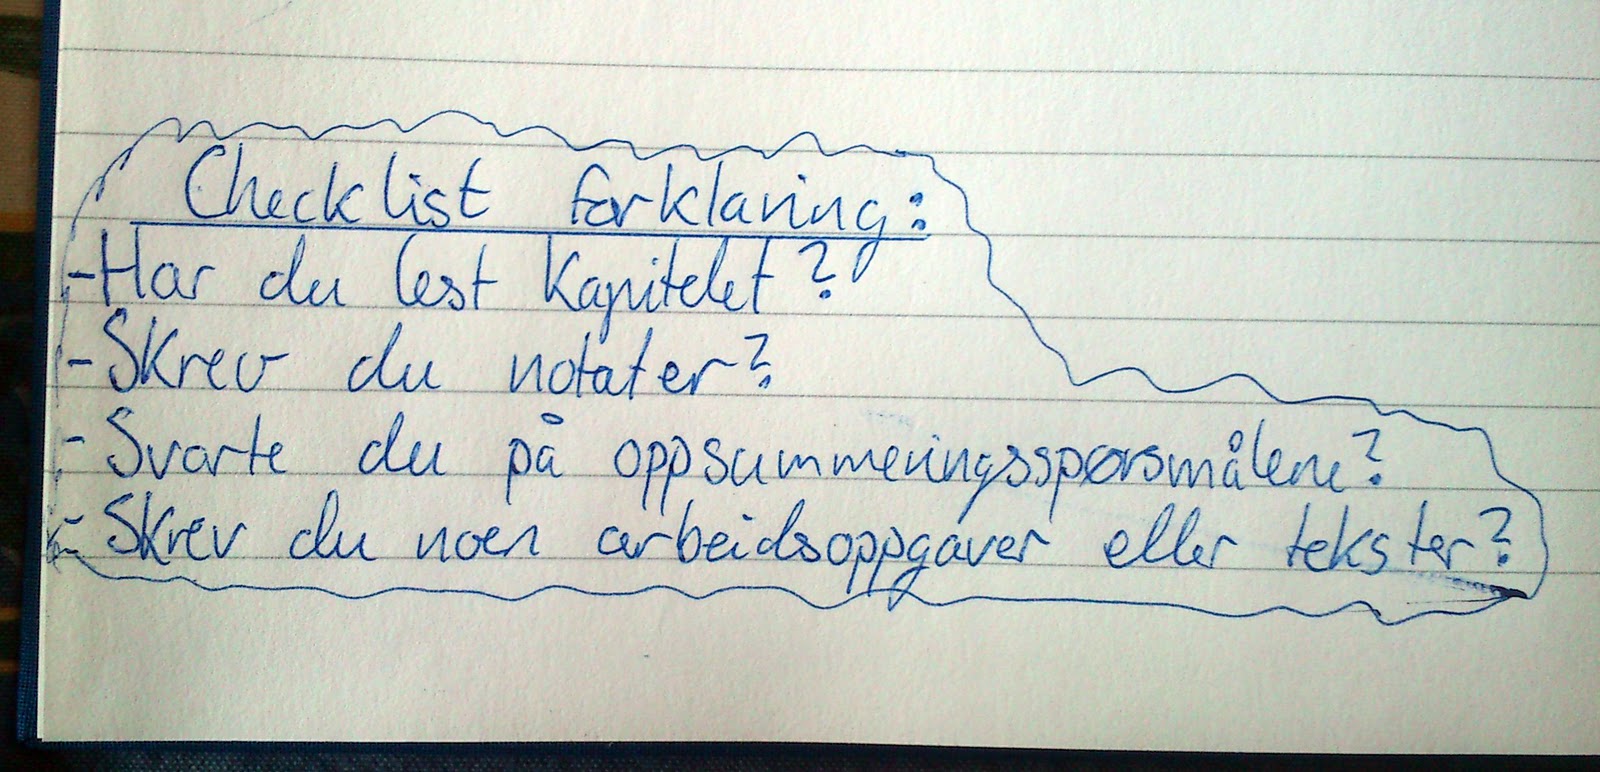 Checklist forklaring:
- Har du lest Kapitelet?
- Skrev du notater?
- Svarte du på oppsummeringsspørsmålene?
- Skrev du noen arbeidsoppgaver eller tekster?